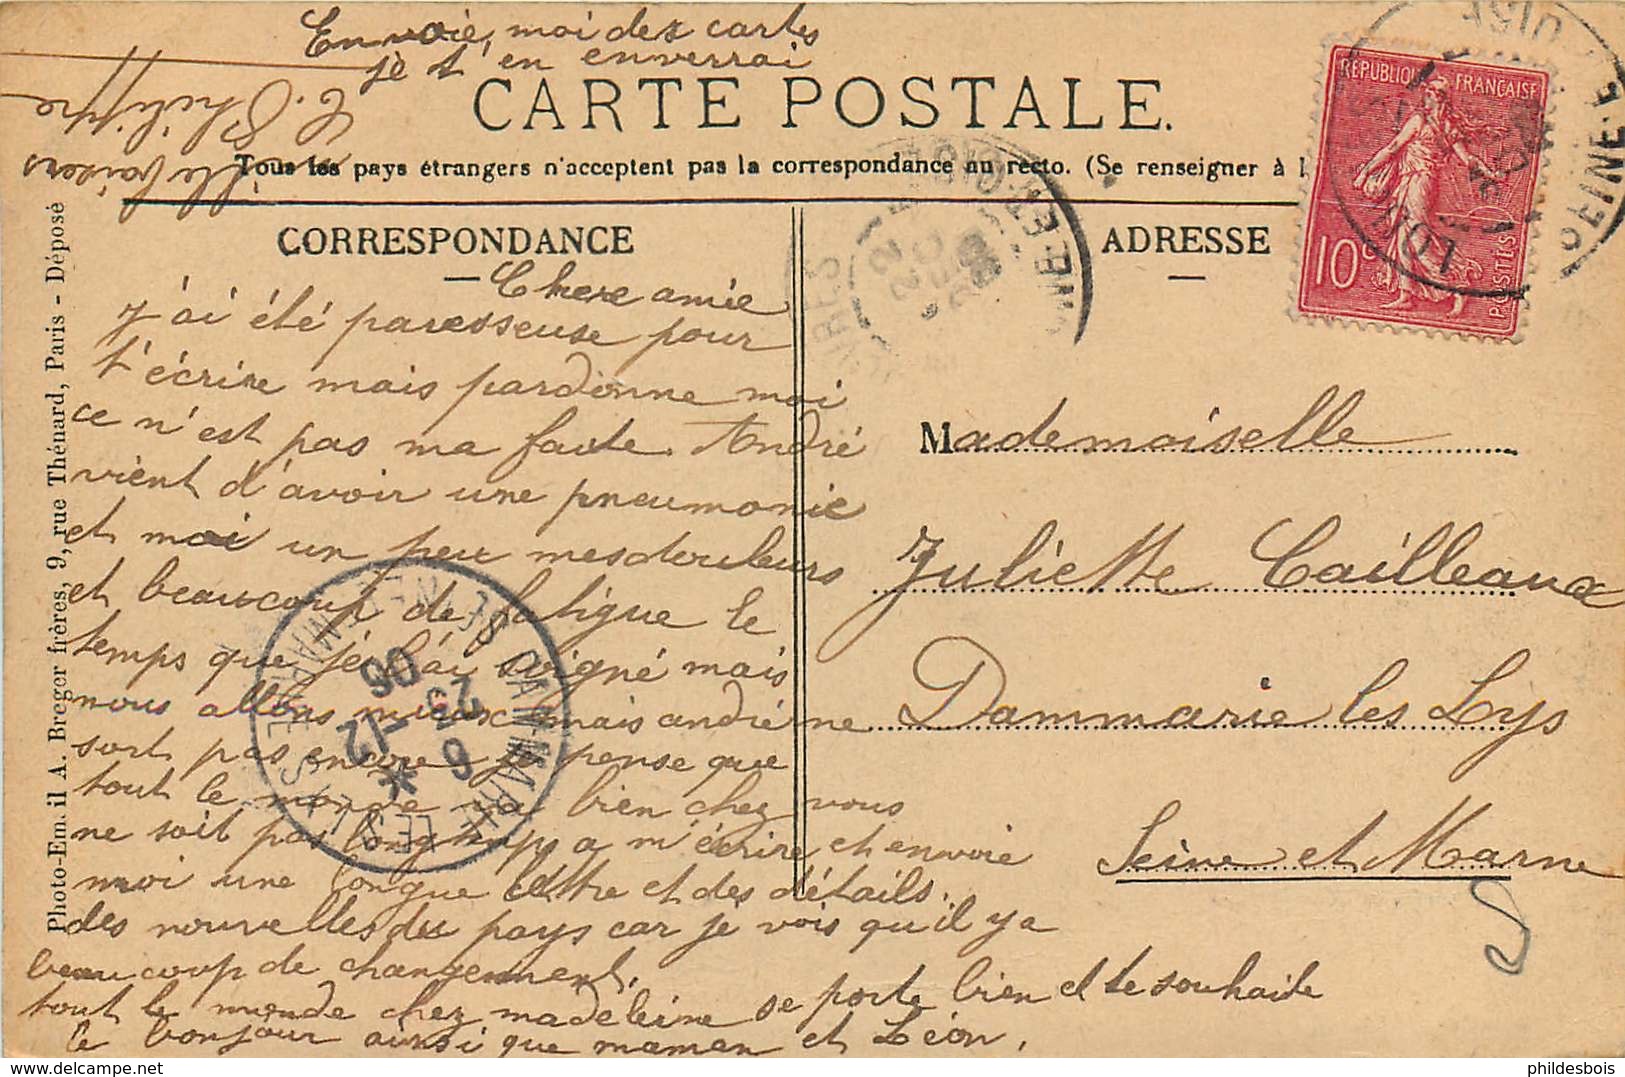 Envoie, moi des cartes
je t'en enverrai
C. Philippe
CARTE POSTALE.
Tous les pays étrangers n'acceptent pas la correspondance au recto. (Se renseigner à l
CORRESPONDANCE
ADRESSE
RÉPUBLIQUE FRANÇAISE
10c
POSTES
Chere amie
J'ai été paresseuse pour
t'écrire mais pardonne moi
ce n'est pas ma faute. André
vient d'avoir une pneumonie
et moi un peu mesdouleurs
et beaucoup de fatigue le
temps que je l'ai soigné mais
nous allons mieux mais andré ne
sort pas encore je pense que
tout le monde va bien chez vous
ne soit pas longtemps a m'écrire et envoie
moi une longue lettre et des détails.
des nouvelles du pays car je vois qu'il y a
beaucoup de changement.
tout le monde chez madeleine se porte bien et te souhaite
le bonjour ainsi que maman et Léon.
Mademoiselle
Juliette Cailleaux
Dammarie les Lys
Seine et Marne
DAMMARIE LES LYS SEINE-ET-MARNE
6
23 -12
06
Photo-Em. il A. Breger frères, 9, rue Thénard, Paris - Déposé
phildesbois